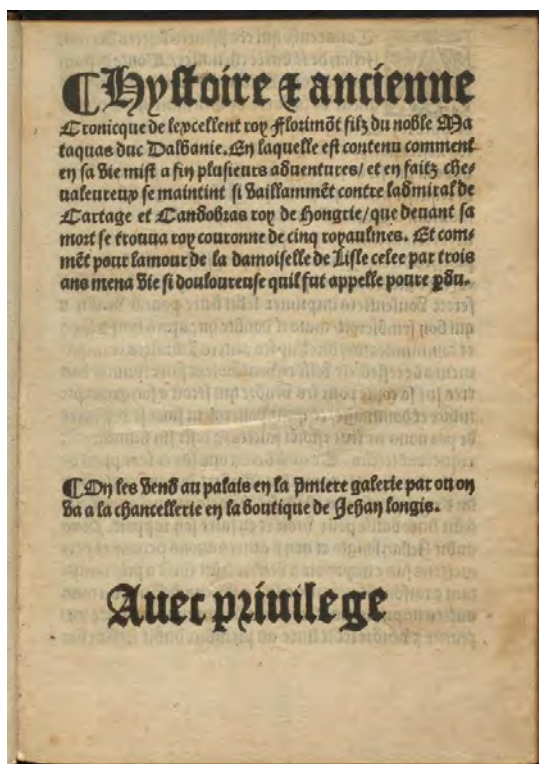 ¶Hystoire ⁊ ancienne
Cronicque de lexcellent roy Florimõt filz du noble Ma
taquas duc Dalbanie. En laquelle est contenu comment
en sa vie mist a fin plusieurs adventures/ et en faitz che-
ualeureux se maintint si vaillammẽt contre ladmiral de
Cartage et Candobras roy de Hongrie/ que deuant sa
mort se trouua roy couronne de cinq royaulmes. Et com-
mẽt pour lamour de la damoiselle de Lisle celee par trois
ans mena vie si douloureuse quil fut appelle poure ꝑdu.
¶On les vend au palais en la p̃miere galerie par ou on
va a la chancellerie en la boutique de Jehan longis.
Auec priuilege